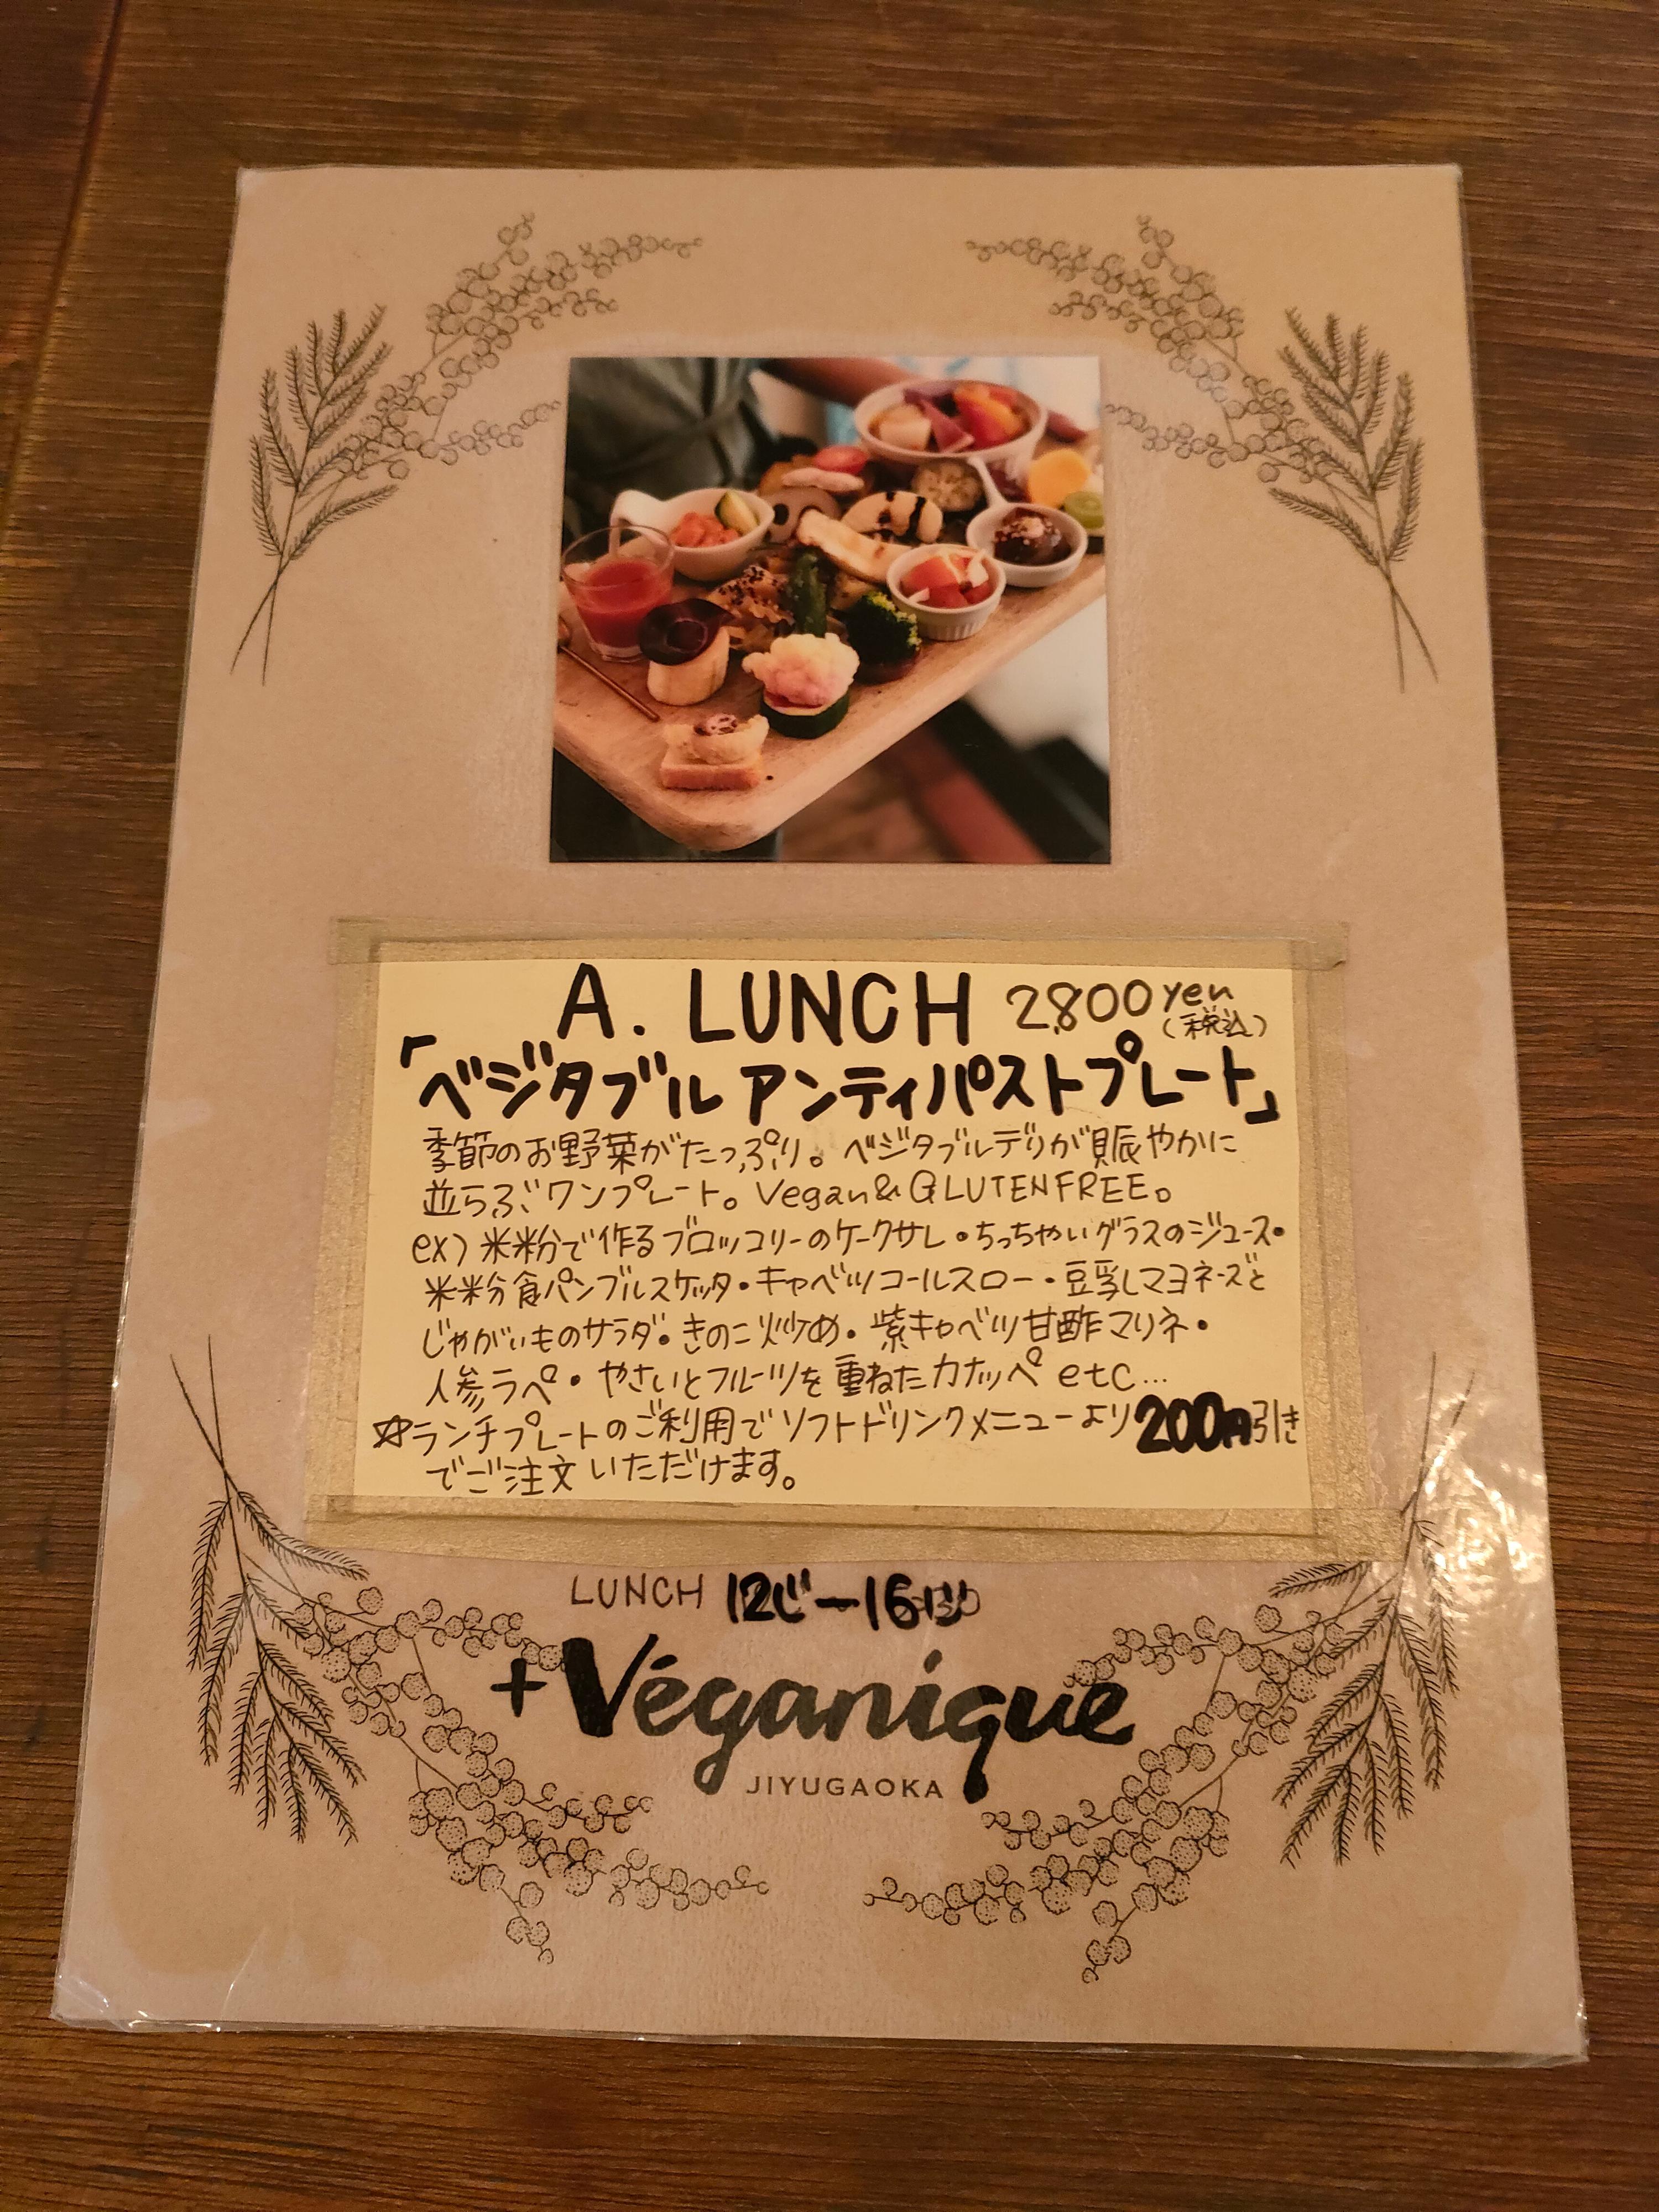 A. LUNCH 2,800yen
(税込)
「ベジタブルアンティパストプレート」
季節のお野菜がたっぷり。ベジタブルデリが賑やかに
並らぶワンプレート。Vegan&GLUTENFREE。
ex)米粉で作るブロッコリーのケークサレ・ちっちゃいグラスのジュース・
米粉食パンブルスケッタ・キャベツコールスロー・豆乳マヨネーズと
じゃがいものサラダ・きのこ炒め・紫キャベツ甘酢マリネ・
人参ラペ・やさいとフルーツを重ねたカナッペ etc...
☆ランチプレートのご利用でソフトドリンクメニューより200円引き
でご注文いただけます。
LUNCH 12:00-16:
+Véganique
JIYUGAOKA